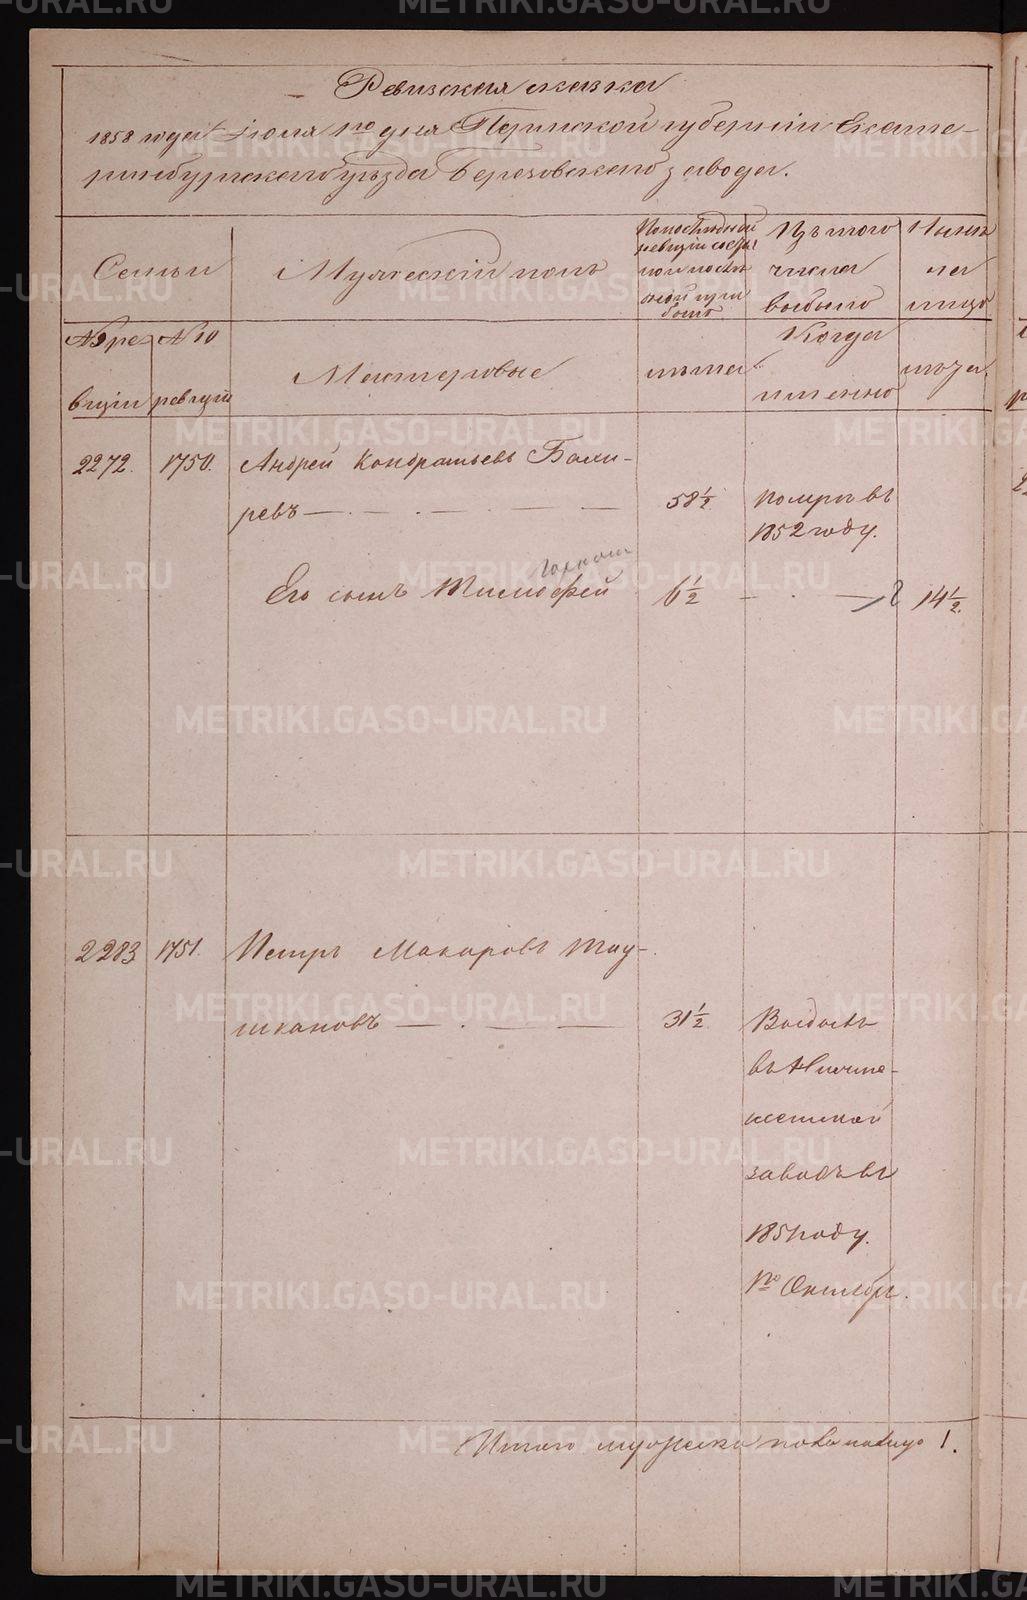 Ревизская сказка
1858 года Июля 1го дня Пермской губернии Екате-
ринбургскаго уѣзда Березовскаго завода.
Семьи
Мужескій полъ
По послѣдней
ревизіи состо
яло и послѣ
оной при
было
Изъ того
числа
выбыло
Нынѣ
на
лицо
№ 9 ре
визіи
№ 10
ревизіи
Мастеровые
лѣта
Когда
именно
лѣта.
2272.
1750.
Андрей Кондратьевъ Боли-
ревъ
58 1/2
померъ въ
1852 году.
Его сынъ Тимофей
6 1/2
14 1/2.
2283
1751.
Петръ Макаровъ Тау-
шкановъ
31 1/2
въ
заводъ въ
1851 году
1го Октября.
Итого мужеска пола на лицо 1.
METRIKI.GASO-URAL.RU